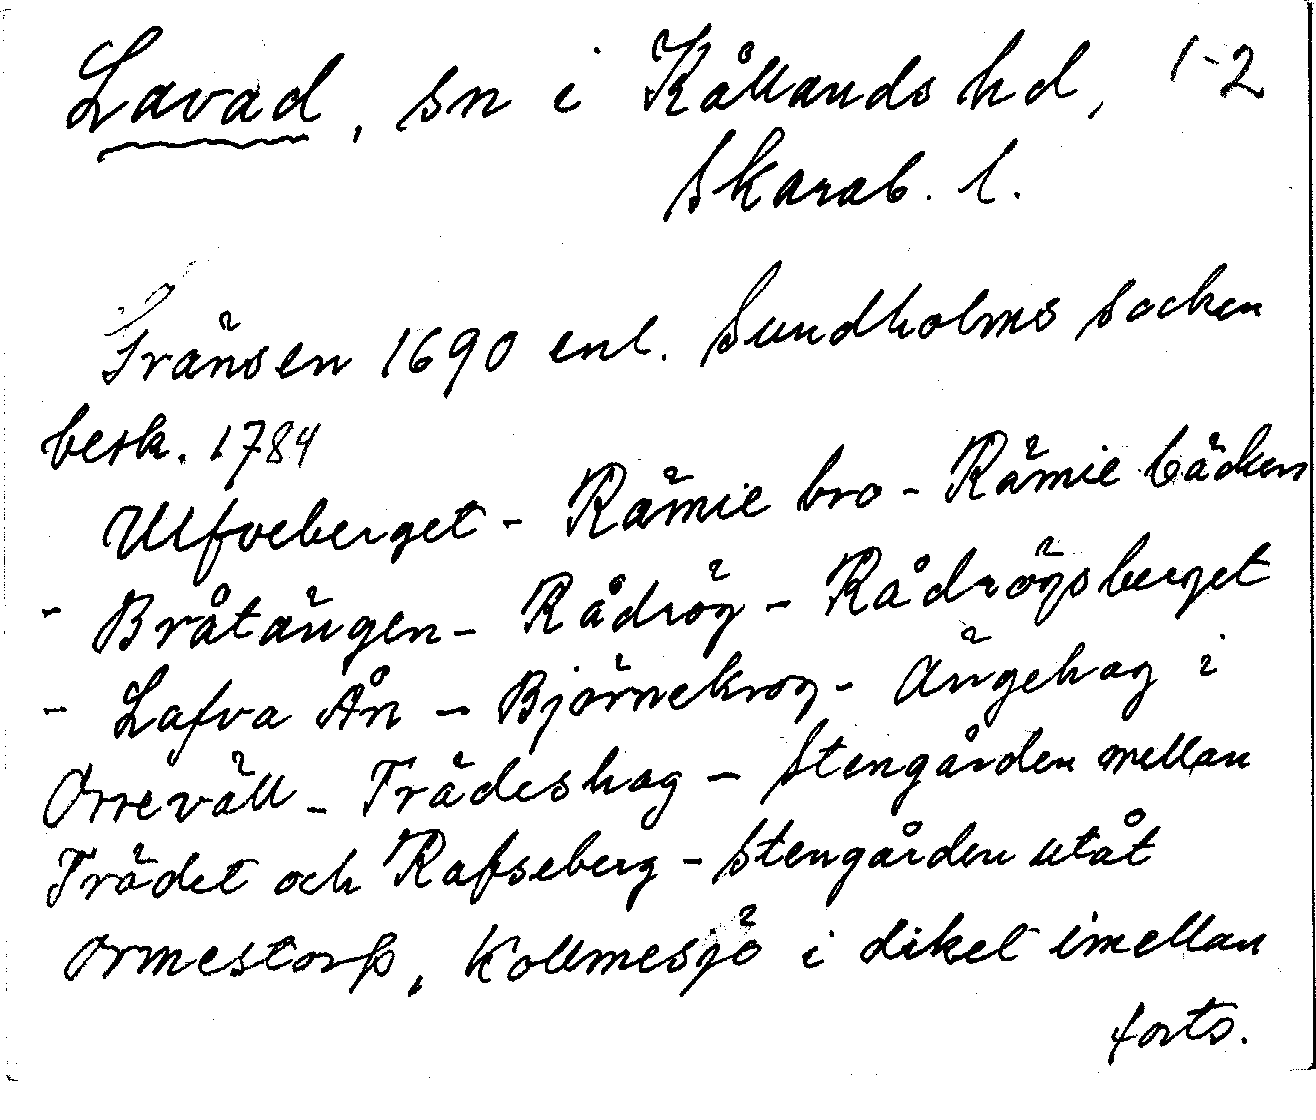 Lavad, sn i Kållands hd, 1-2
Skarab. l.
Gränsen 1690 enl. Sundholms socken
besk. 1784
Ulfveberget - Rämie bro - Rämie bäcken
- Bråtängen - Rådrög - Rådrögsberget
- Lafva Ån - Björnekrog - Ängehag i
Orreväll - Trädeshag - Stengården mellan
Trädet och Rafseberg - Stengården utåt
Ormestorp, Kollmesjö i diket imellan
forts.